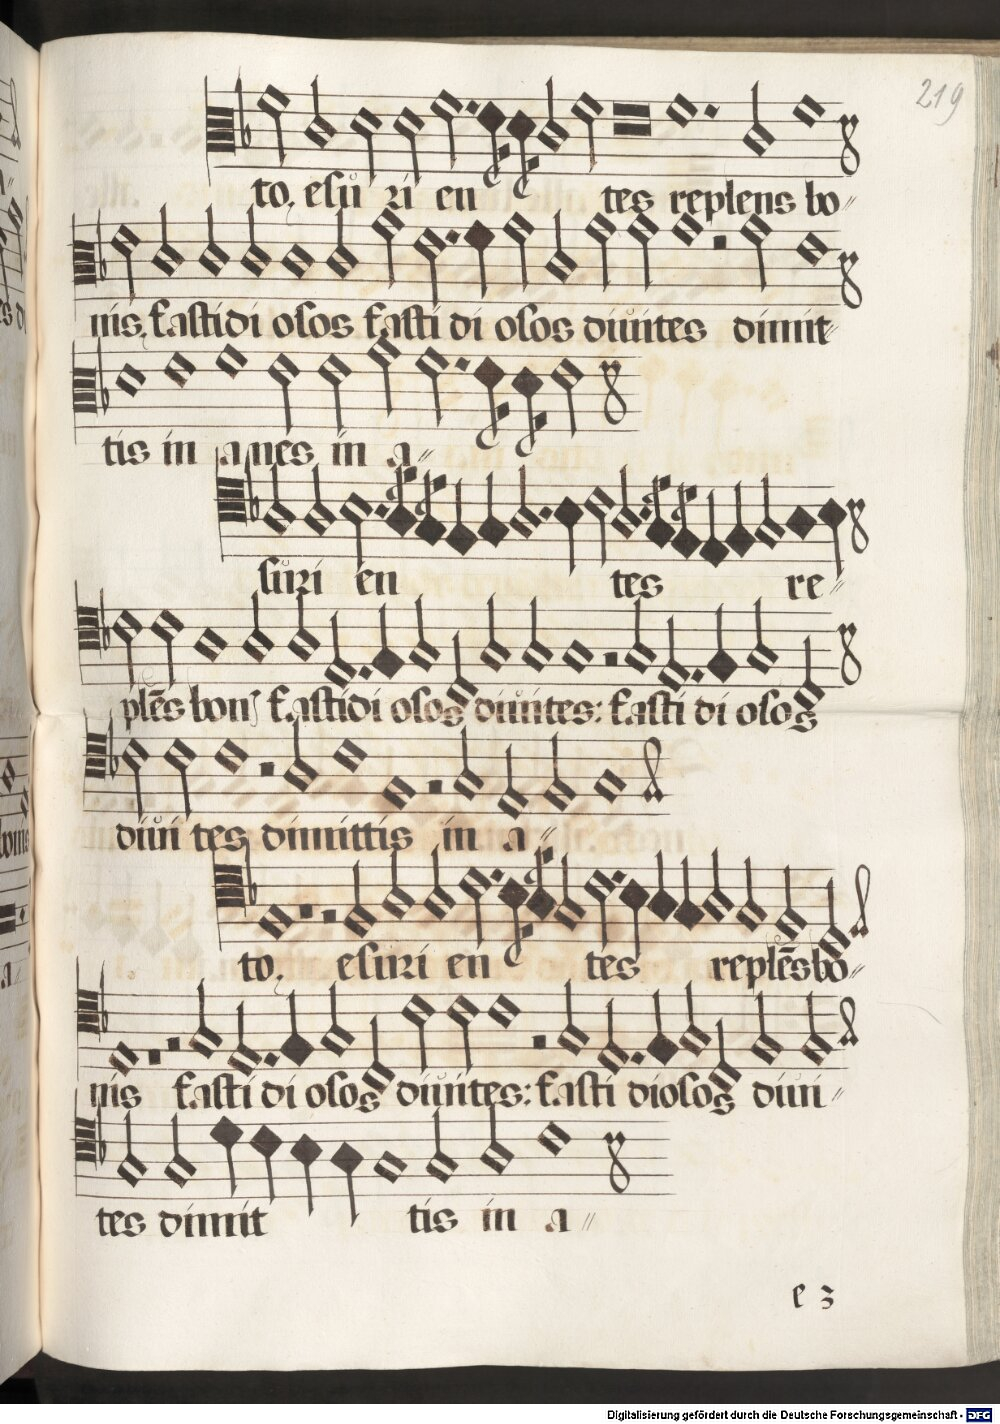 219
to. esuri en tes replens bo〃
nis. fastidi osos fasti di osos diuites dimit〃
tis in anes in a〃
suri en tes re〃
plēs bon fastidi osos diuites: fasti di osos
diui tes dimittis in a〃
to. esuri en tes replēs bo〃
nis fasti di osos diuites: fasti diosos diui〃
tes dimit tis in a〃
e 3
Digitalisierung gefördert durch die Deutsche Forschungsgemeinschaft - DFG